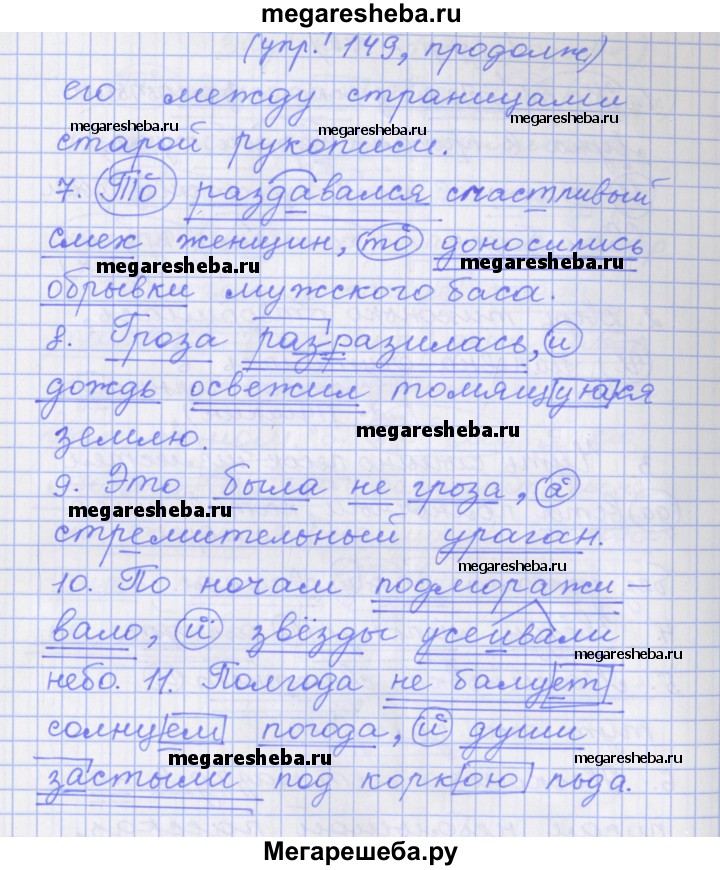 megaresheba.ru
(упр. 149, продолж)
его между страницами
megaresheba.ru megaresheba.ru megaresheba.ru
старой рукописи.
7. То раздавался счастливый
смех женщин, то доносились
megaresheba.ru megaresheba.ru
обрывки мужского баса.
8. Гроза разразилась, и
дождь освежил томящуюся
megaresheba.ru
землю.
9. Это была не гроза, а
megaresheba.ru
стремительный ураган.
megaresheba.ru
10. По ночам подморажи-
вало, и звёзды усеивали
megaresheba.ru
небо. 11. Полгода не балует
солнцем погода, и души
megaresheba.ru megaresheba.ru
застыли под коркою льда.
Мегарешеба.ру